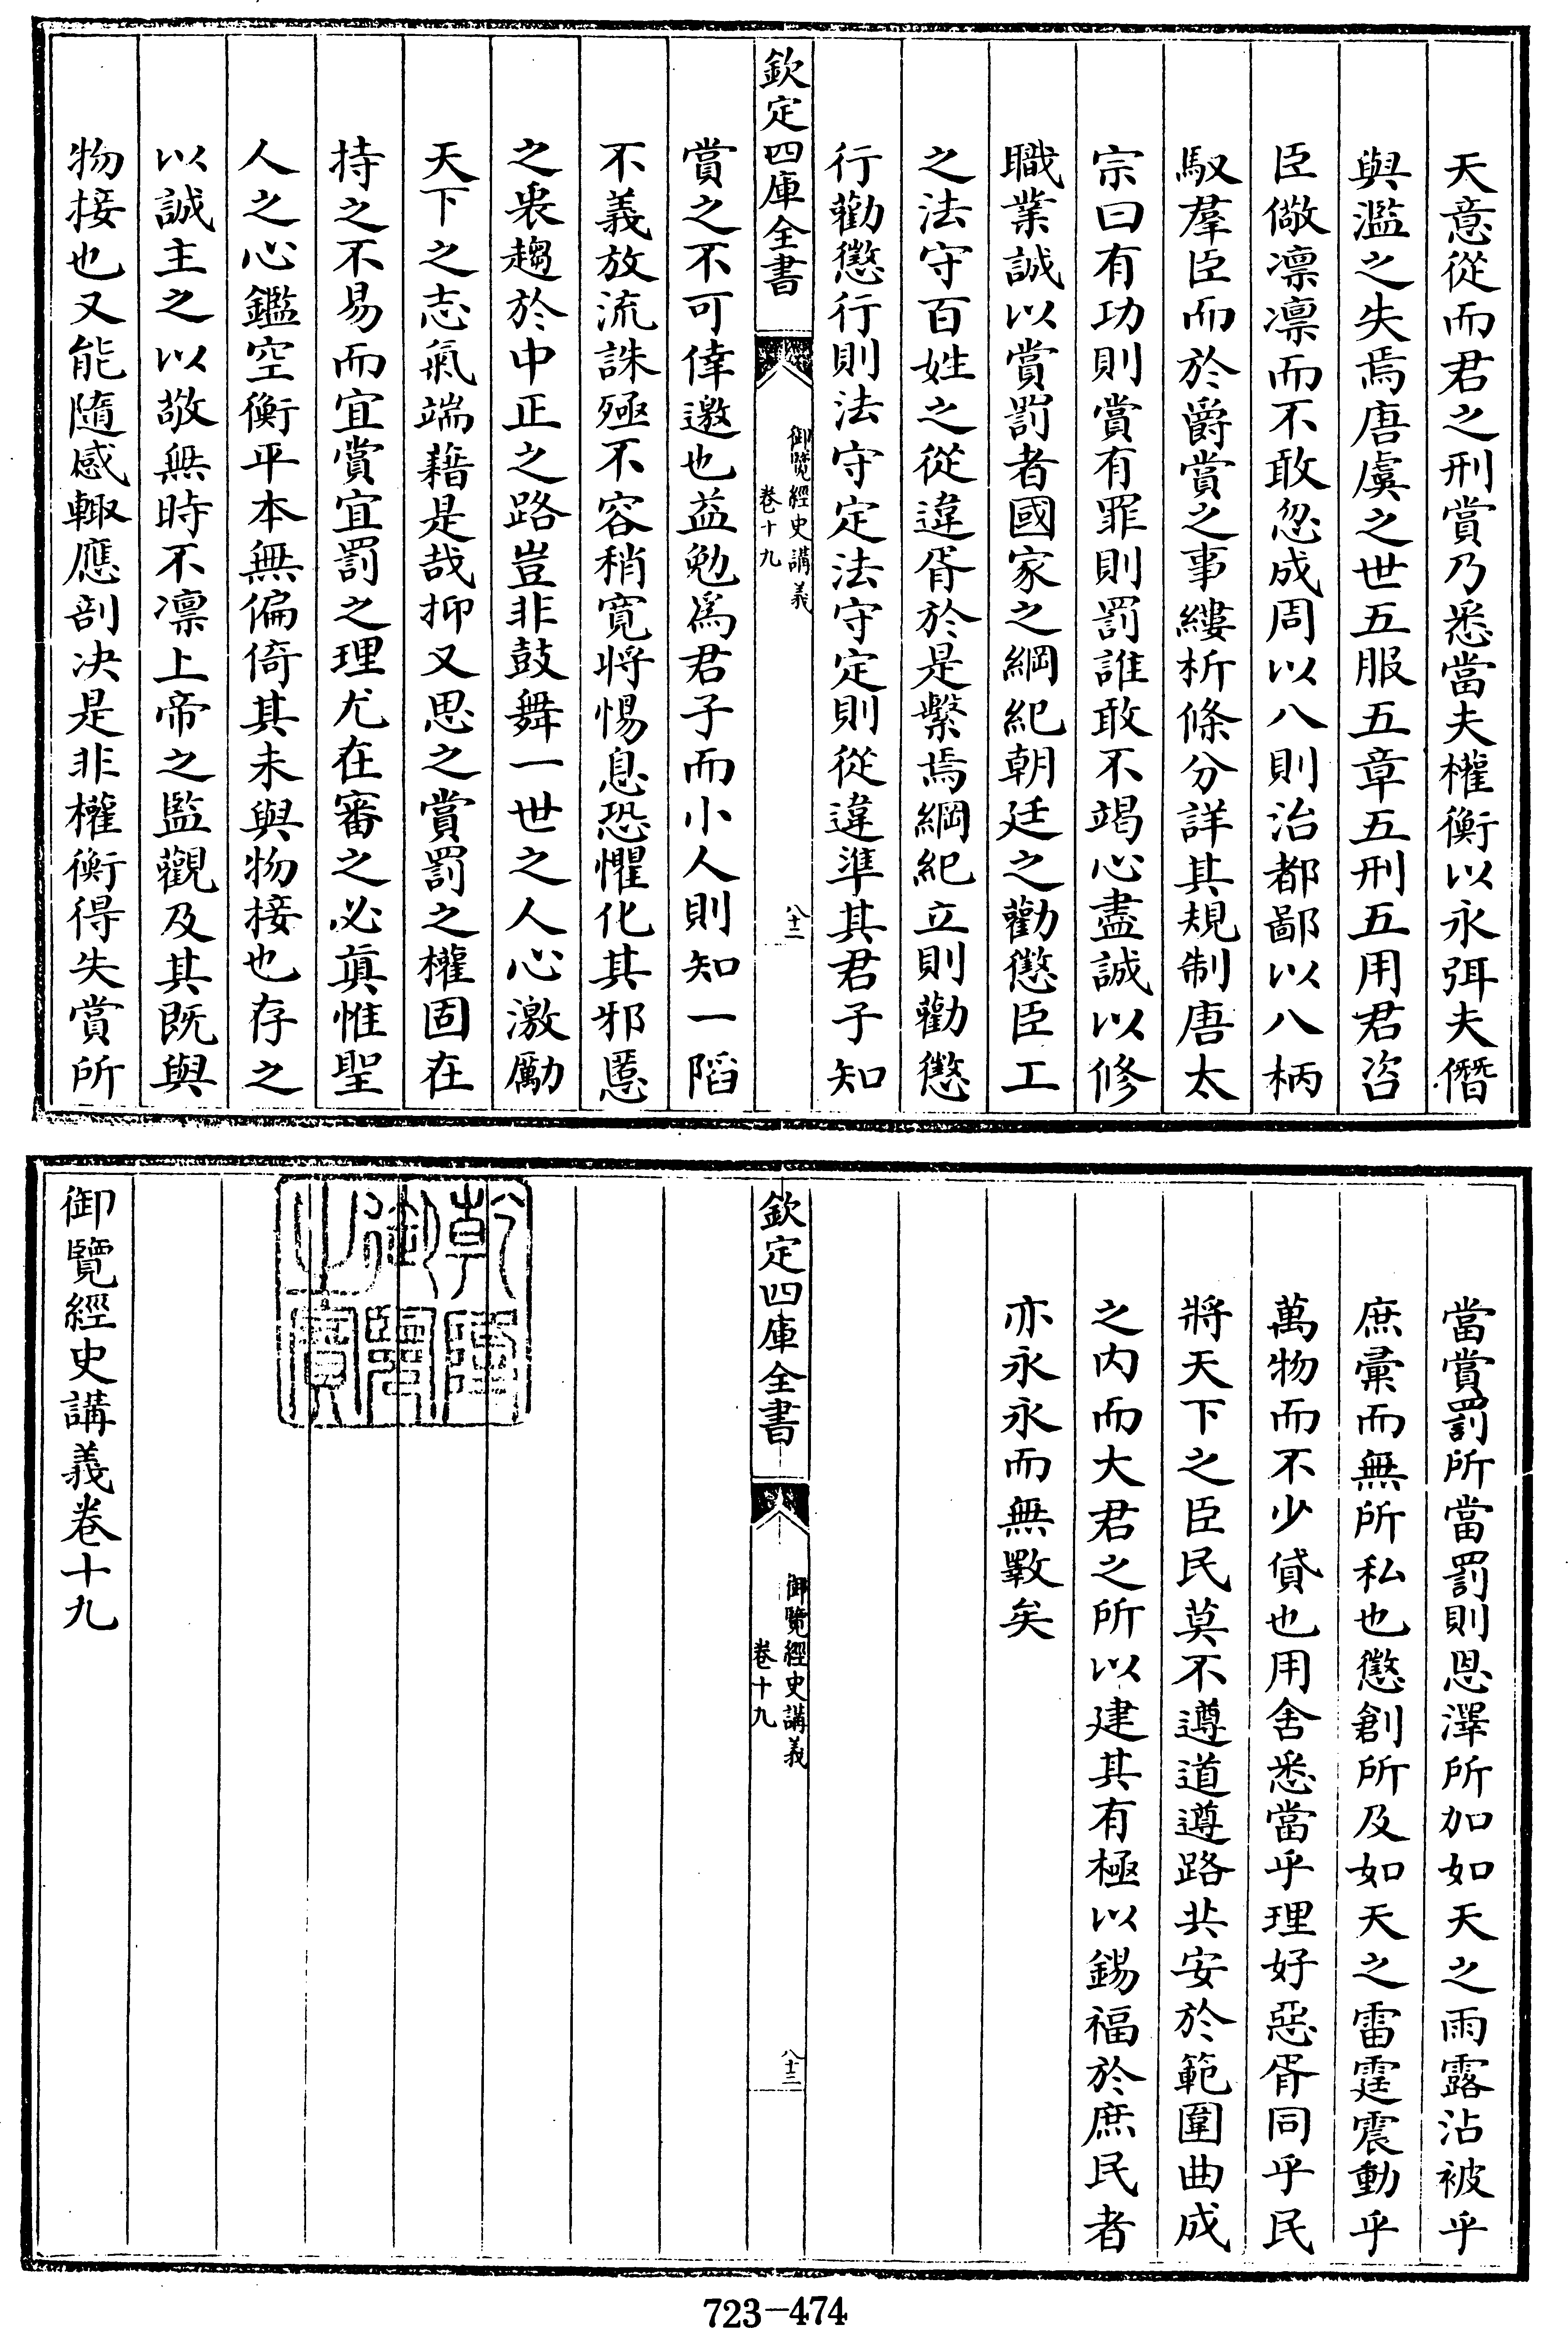 天意從而君之刑賞乃悉當夫權衡以永弭夫僭
與濫之失焉唐虞之世五服五章五刑五用君咨
臣儆凛凛而不敢忽成周以八則治都鄙以八柄
馭羣臣而於爵賞之事縷析條分詳其規制唐太
宗曰有功則賞有罪則罰誰敢不竭心盡誠以修
職業誠以賞罰者國家之綱紀朝廷之勸懲臣工
之法守百姓之從違胥於是繫焉綱紀立則勸懲
行勸懲行則法守定法守定則從違準其君子知
欽定四庫全書
御覽經史講義
卷十九
八十二
賞之不可倖邀也益勉爲君子而小人則知一陷
不義放流誅殛不容稍寛將惕息恐懼化其邪慝
之衷趨於中正之路豈非鼓舞一世之人心激勵
天下之志氣端藉是哉抑又思之賞罰之權固在
持之不易而宜賞宜罰之理尤在審之必眞惟聖
人之心鑑空衡平本無偏倚其未與物接也存之
以誠主之以敬無時不凛上帝之監觀及其既與
物接也又能隨感輒應剖决是非權衡得失賞所
當賞罰所當罰則恩澤所加如天之雨露沾被乎
庶彚而無所私也懲創所及如天之雷霆震動乎
萬物而不少貸也用舍悉當乎理好惡胥同乎民
將天下之臣民莫不遵道遵路共安於範圍曲成
之内而大君之所以建其有極以錫福於庶民者
亦永永而無斁矣
欽定四庫全書
御覽經史講義
卷十九
八十三
乾隆御覽之寶
御覽經史講義卷十九
723-474